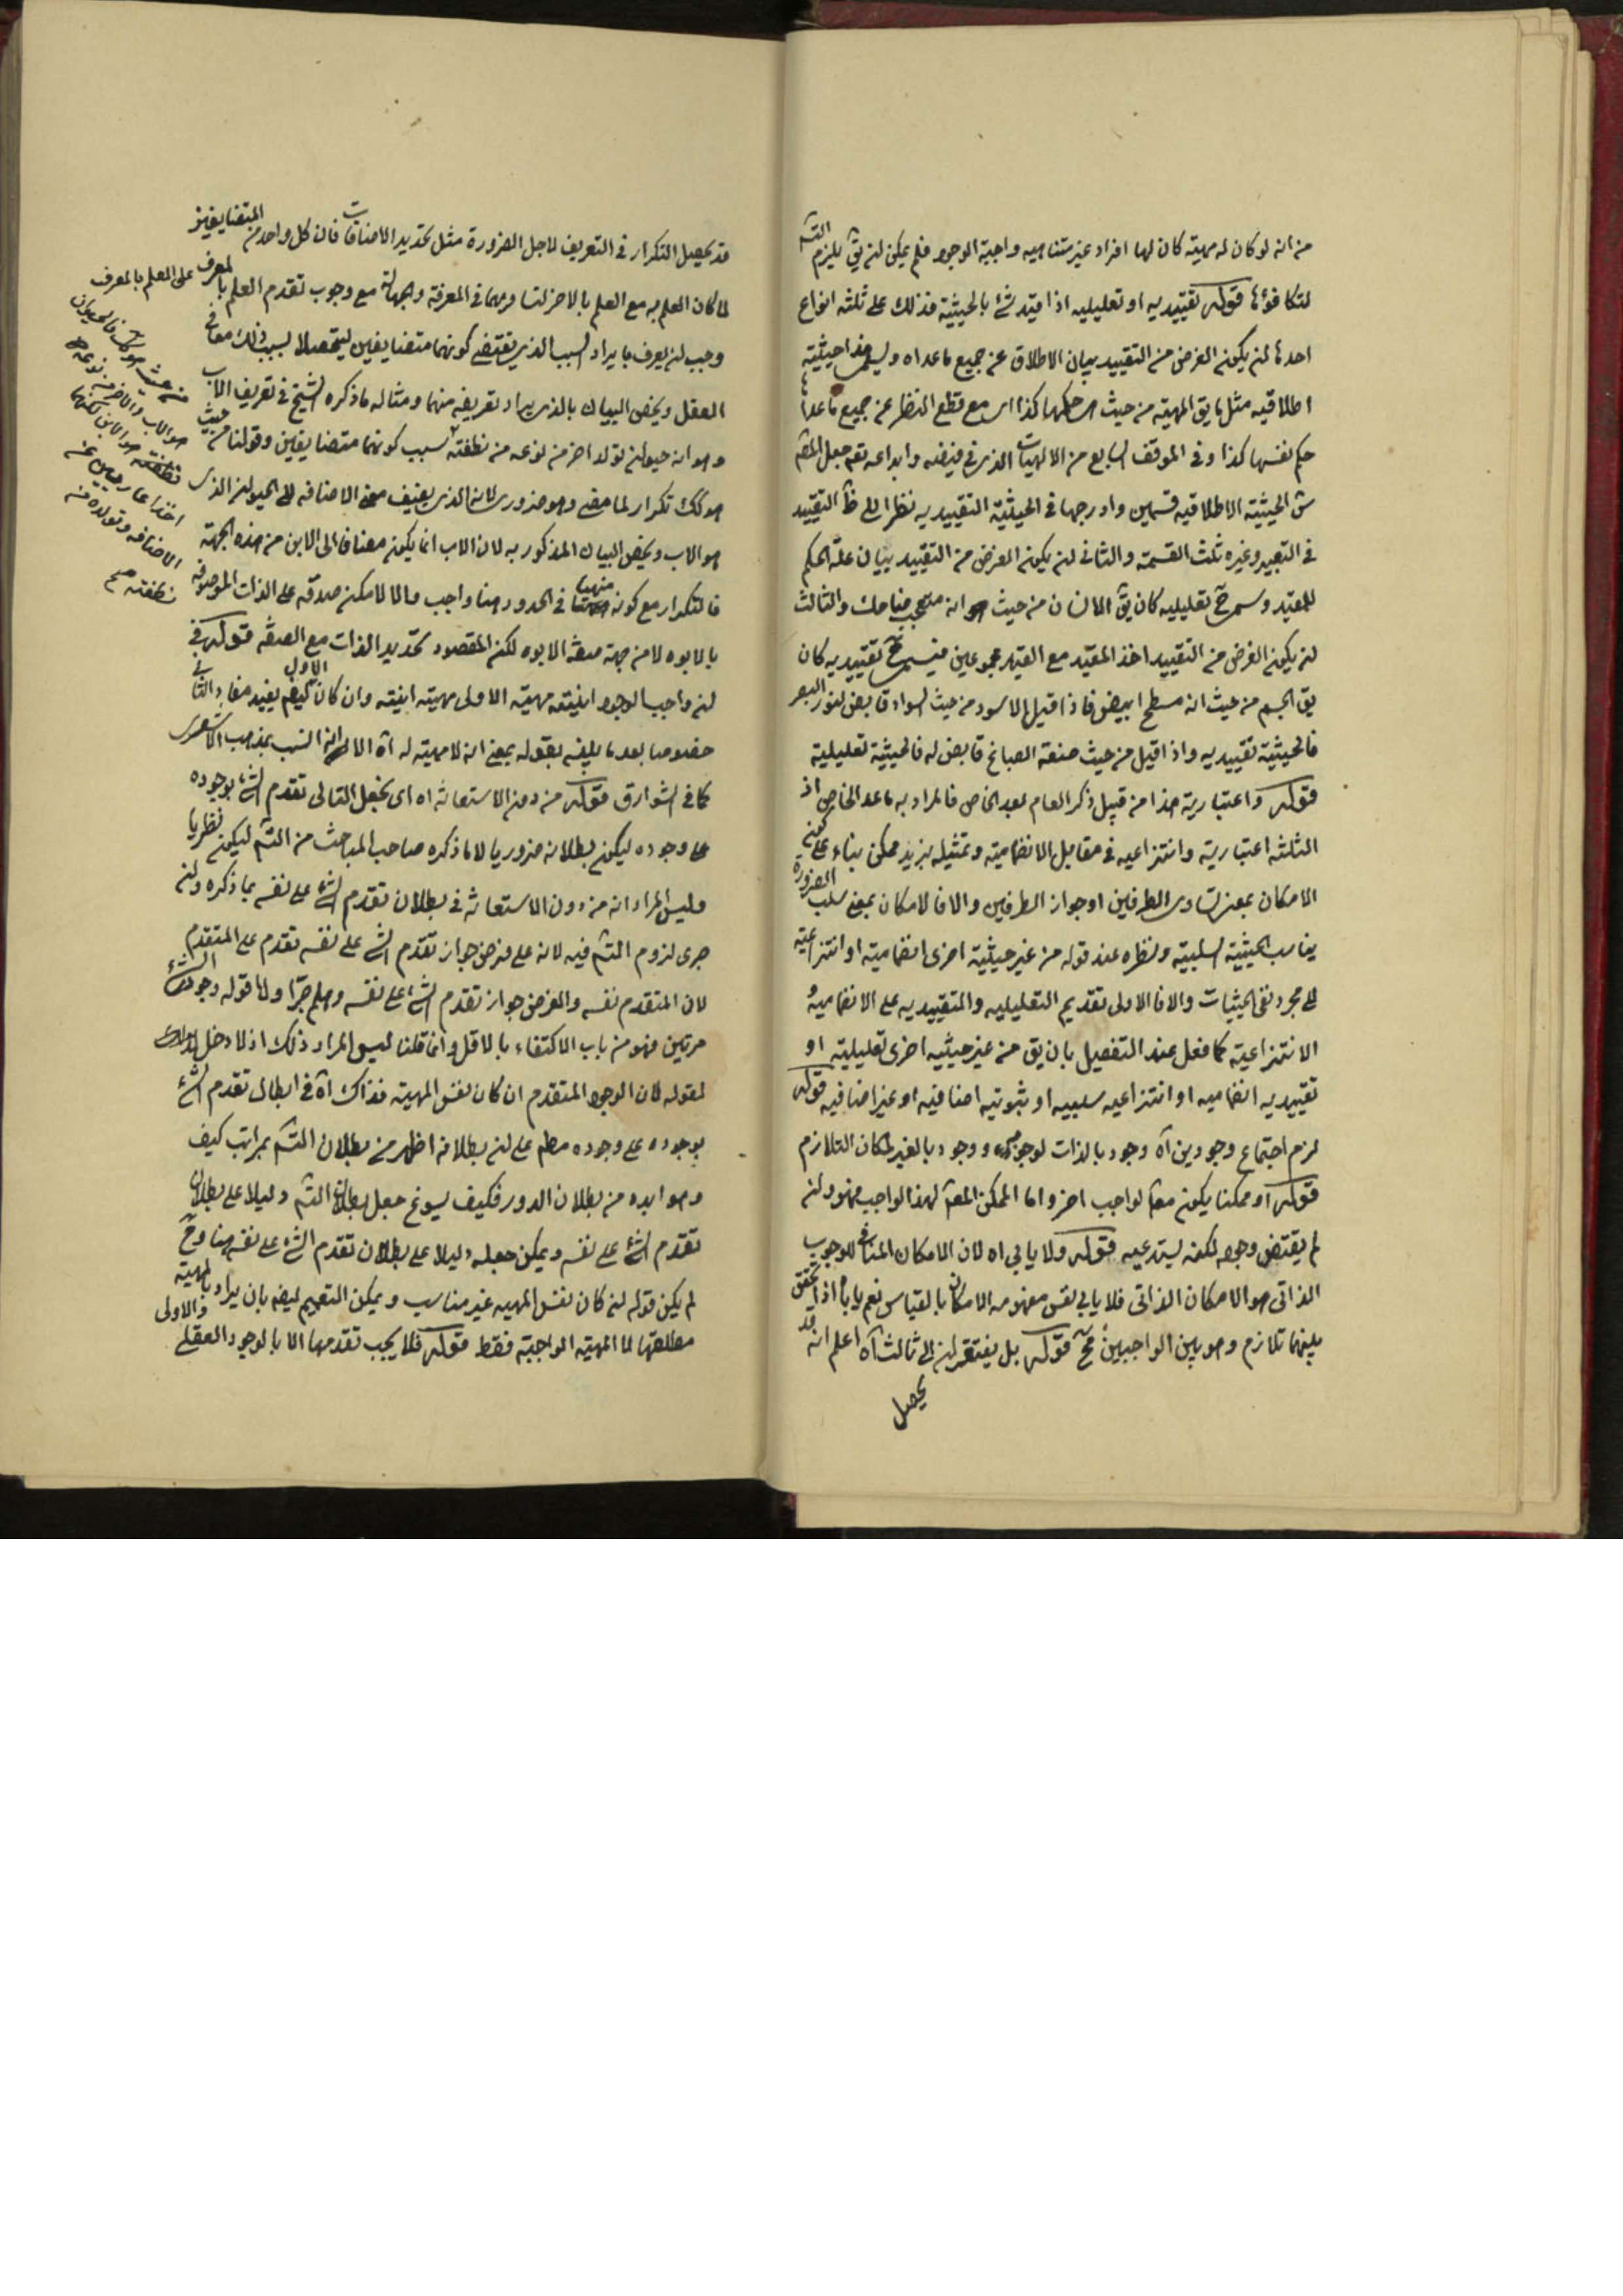 من انه لو كان له مهية كان لها افراد غير متناهيه واجبة الوجود فلم يمكن ان يق يلزم التسم
لتكافؤها قوله تقييديه او تعليليه اذا قيد شئ بالحيثية فذلك على ثلثه انواع
احدها ان يكون الغرض من التقييد بيان الاطلاق عن جميع ما عداه ويسمى هذا حيثية
اطلاقيه مثل ما يق المهية من حيث هى حكمها كذا اى مع قطع النظر عن جميع ما عداها
حكم نفسها كذا وفى الموقف السابع من الالهيات الذى فى فيضه وابداعه تعم جعل المص
ش الحيثية الاطلاقيه قسمين وادرجها فى الحيثية التقييديه نظرا الى ظ التقييد
فى التعبير وغيره ثلث القسمة والثانى ان يكون الغرض من التقييد بيان علة الحكم
للمقيد وسمى ح تعليليه كان يق الانسان من حيث انه متعجب ضاحك والثالث
ان يكون الغرض من التقييد اخذ المقيد مع القيد مجموعين فيسمى ح تقييديه كان
يق الجسم من حيث انه مسطح ابيض فاذا قيل الاسود من حيث السواد قابض لنور البصر
فالحيثية تقييديه واذا قيل من حيث صنعة الصباغ قابض له فالحيثية تعليلية
قوله واعتبارية هذا من قبيل ذكر العام بعد الخاص فالمراد به ما عد الخاص اذ
الثلثه اعتبارية وانتزاعيه فى مقابل الانضمامية وتمثيله بزيد ممكن بناء على كون
الامكان بمعنى تساوى الطرفين او جواز الطرفين والا فالامكان بمعنى سلب الضرورة
يناسب الحيثية السلبية ونظره عند قوله من غير حيثية اخرى انضمامية او انتزاعية
الى مجرد نفى الحيثيات والا فالاولى تقديم التعليليه والتقييديه على الانضمامية و
الانتزاعية كما فعل عند التفصيل بان يق من غير حيثيه اخرى تعليلية او
تقييديه انضماميه او انتزاعيه سلبيه او ثبوتيه اضافيه او غير اضافيه قوله
لزم اجتماع وجودين آه وجود بالذات لوجوبه ووجود بالغير لمكان التلازم
قوله او ممكنا يكون معه لواجب اخر واما الممكن المعه لهذا الواجب فهو وان
لم يقتض وجوده لكنه يستدعيه قوله ولا يابى اه لان الامكان المنافى للوجوب
الذاتى هو الامكان الذاتى فلا يابى نفس مفهومه الامكان بالقياس نعم يابا اذا تحقق
بينهما تلازم وهو بين الواجبين مح قوله بل يفتقران الى ثالث آه اعلم انه قد
يحصل
قد يحصل التكرار فى التعريف لاجل الضرورة مثل تحديد الاضافات فان كل واحد من المتضايفين
لما كان العلم به مع العلم بالاخر لتساويهما فى المعرفة والجهالة مع وجوب تقدم العلم بالمعرف على العلم بالمعرف
وجب ان يعرف بايراد السبب الذى يقتضى كونهما متضايفين ليتحصلا بسبب ذلك معا فى
العقل ويخص البيان بالذى يراد تعريفه منهما ومثاله ما ذكره الشيخ فى تعريف الاب
وهو انه حيوان تولد اخر من نوعه من نطفته بسبب كونهما متضايفين وقولنا من حيث
هو كك تكرار لما مضى وهو ضرورى لانه الذى يضيف معنى الاضافه الى الحيوان الذى
هو الاب ويخص البيان المذكور به لان الاب انما يكون مضافا الى الابن من هذه الجهة
فالتكرار مع كونه منهيا فى الحدود هنا واجب والا لامكن صدقه على الذات الموصوفه
بالابوه لا من جهة صفة الابوه لكن المقصود تحديد الذات مع الصفه قوله فى
ان واجب الوجود انيته مهيته الاولى مهيته انيته وان كان الاول يفيد مفاد الثانى
خصوصا بعد ما يليه بقوله بمعنى انه لا مهية له آه الا انه انسب بمذهب الاشعرى
كما فى الشوارق قوله من دون الاستعانة اه اى بجعل التالى تقدم الشئ بوجوده
على وجوده ليكون بطلانه ضروريا لا ما ذكره صاحب المباحث من التسم ليكون نظريا
وليس المراد انه من دون الاستعانة فى بطلان تقدم الشئ على نفسه بما ذكره وان
جرى لزوم التسم فيه لانه على فرض جواز تقدم الشئ على نفسه تقدم على المتقدم
لان المتقدم نفسه والفرض جواز تقدم الشئ على نفسه وهلم جرا واما قوله وجود الشئ
مرتين فهو من باب الاكتفاء بالاقل وانما قلنا ليس المراد ذلك اذ لا دخل
لقوله لان الوجود المتقدم ان كان نفس المهية فذاك آه فى ابطال تقدم الشئ
بوجوده على وجوده مطم على ان بطلانه اظهر من بطلان التسم بمراتب كيف
وهو ابده من بطلان الدور فكيف يسوغ جعل بطلان التسم دليلا على بطلان
تقدم الشئ على نفسه ويمكن جعله دليلا على بطلان تقدم الشئ على نفسه هنا وح
لم يكن قوله ان كان نفس المهيه غير مناسب ويمكن التعميم ايضا بان يراد بالمهية
مطلقها لا المهية الواجبة فقط قوله فلا يجب تقدمها الا بالوجود العقلى